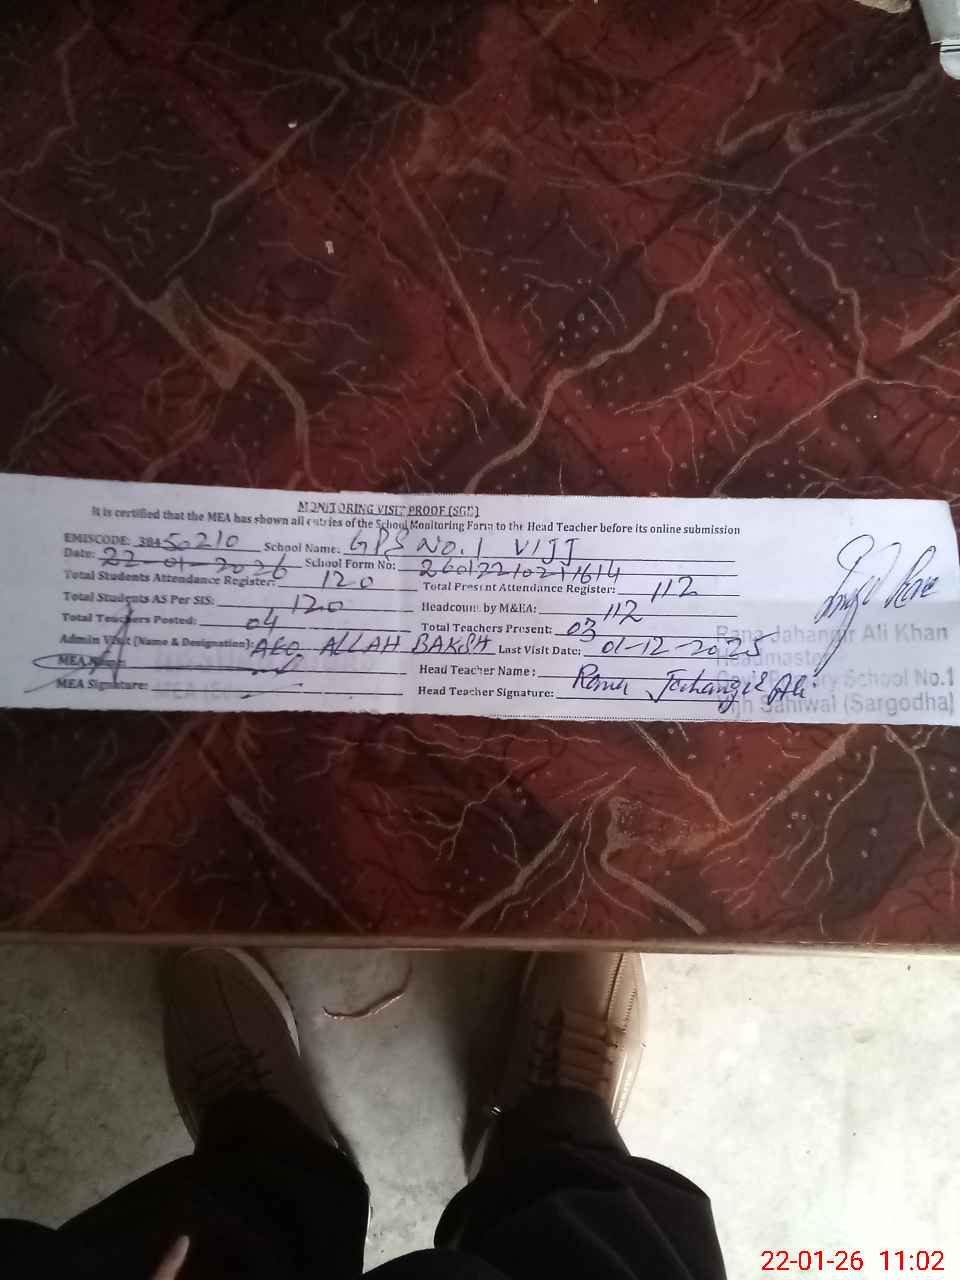 MONITORING VISIT PROOF (SGD)
It is certified that the MEA has shown all entries of the School Monitoring Form to the Head Teacher before its online submission
EMISCODE: 38450210 School Name: GPS NO.1 VIJJ
Date: 22-01-2026 School Form No:
Total Students Attendance Register: 120 Total Present Attendance Register: 112
Total Students AS Per SIS: 120 Headcount by M&EA: 112
Total Teachers Posted: 04 Total Teachers Present: 03
Admin Visit (Name & Designation): AEO ALLAH BAKSH Last Visit Date: 01-12-2025
MEA Name: Head Teacher Name: Rana Jahangir Ali
MEA Signature: Head Teacher Signature:
Rana Jahangir Ali Khan
Headmaster
School No.1
Sahiwal (Sargodha)
22-01-26 11:02